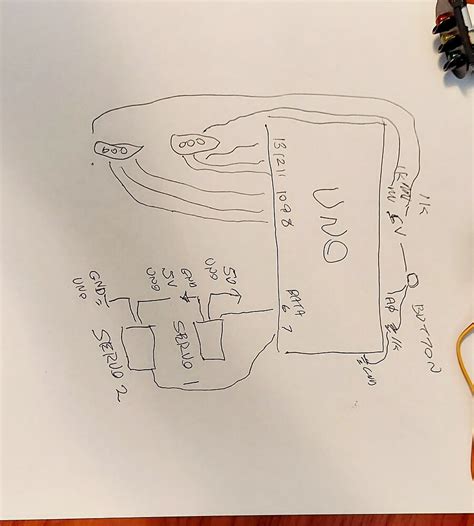 UNO
13 12 11 10 9 8
6 7
1K
5V
BUTTON
1K
GND
5V
UNO
GND
SERVO 1
5V
UNO
GND
UNO
SERVO 2